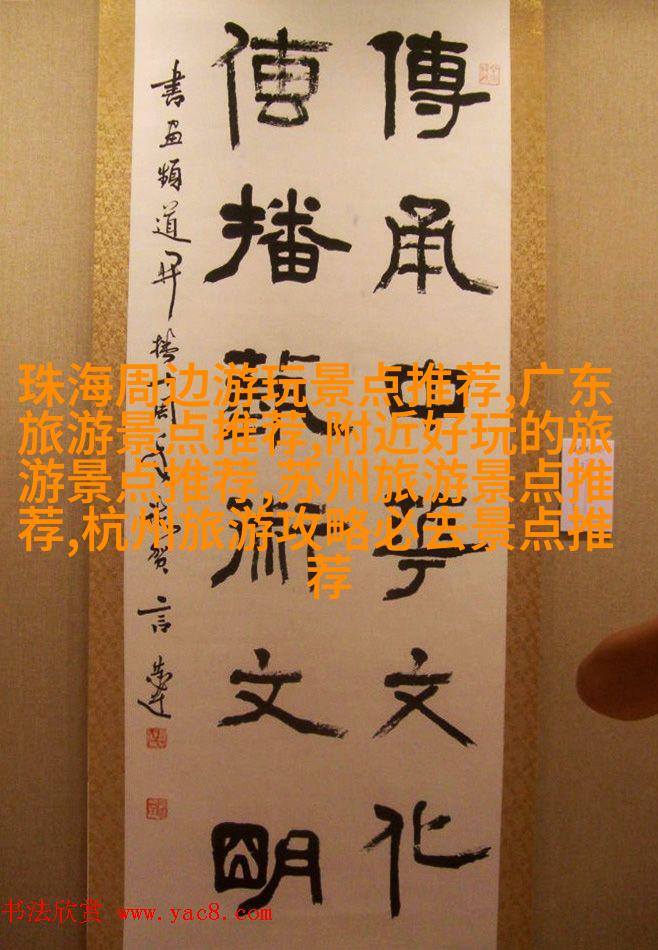 傳承中華文化
傳播藝術文明
書畫頻道開播十周年賀 言恭達
珠海周边游玩景点推荐,广东
旅游景点推荐,附近好玩的旅
游景点推荐,苏州旅游景点推
荐,杭州旅游攻略必去景点推
荐
书法欣赏 www.yac8.com